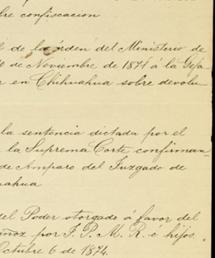 re confiscacion
de la órden del Ministerio de
de Noviembre de 1871 á la Gefa
r en Chihuahua sobre devolu
la sentencia dictada por el
la Suprema Corte confirman
de Amparo del Juzgado de
uahua
del Poder otorgado á favor del
uñoz por J. P. M. R. é hijos
Octubre 6 de 1874.